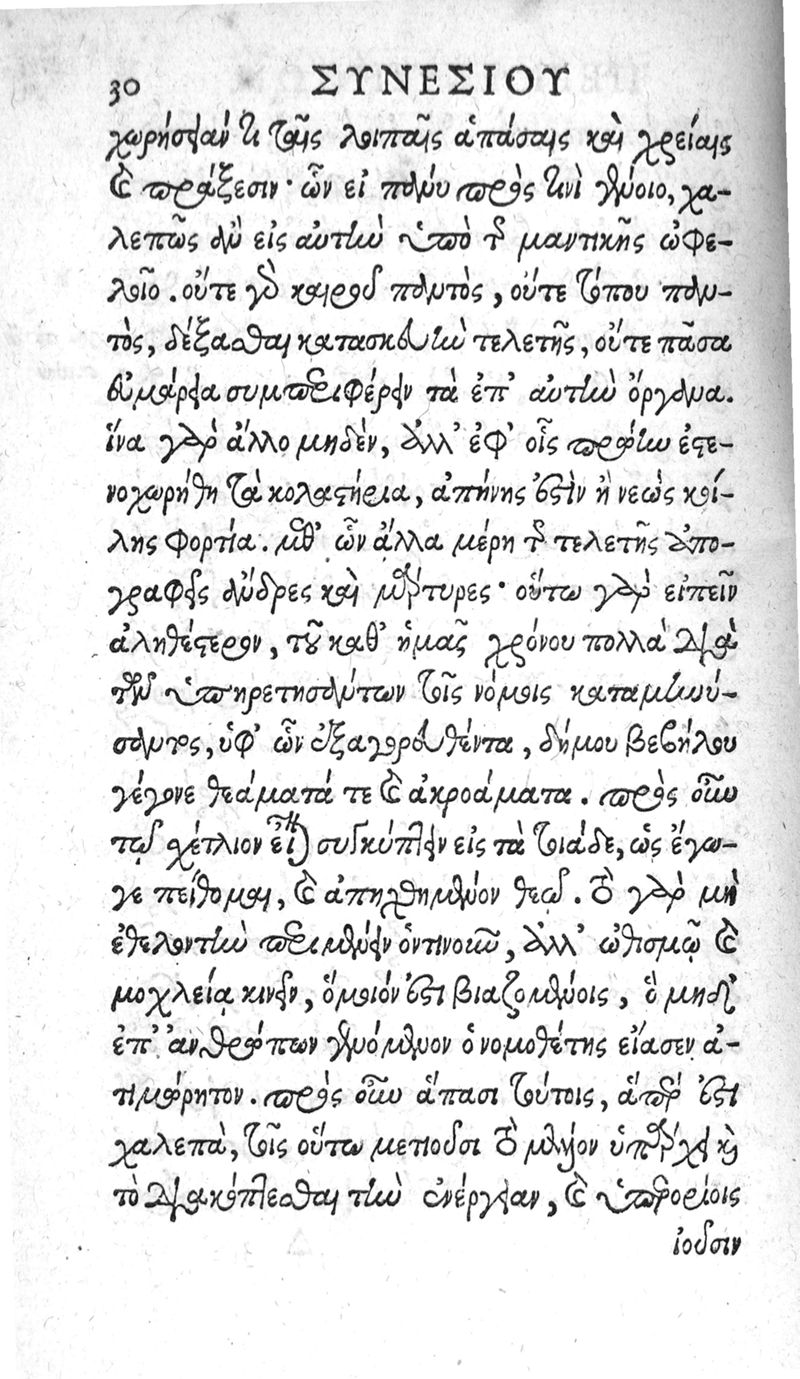 30 ΣΥΝΕΣΙΟΥ
χωρήσειάν τι ταῖς λοιπαῖς ἁπάσαις καὶ χρείαις
καὶ πράξεσιν· ὧν εἰ πάνυ πρός τινι γένοιο, χα-
λεπῶς ἂν εἰς αὐτὴν ὑπὸ τῆς μαντικῆς ὠφε-
λοῖο. οὔτε γὰρ καιροῦ παντὸς, οὔτε τόπου παν-
τὸς, δέξασθαι κατασκευὴν τελετῆς, οὔτε πᾶσα
εὐμάρεια συμπεριφέρειν τὰ ἐπ' αὐτὴν ὄργανα.
ἵνα γὰρ ἄλλο μηδὲν, ἀλλ' ἐφ' οἷς πρώην ἐστε-
νοχωρήθη τὰ κολαστήρια, ἀπήνης ἐστὶν ἢ νεὼς κοί-
λης φορτία. μεθ' ὧν ἄλλα μέρη τῆς τελετῆς ἀπο-
γραφεῖς ἄνδρες καὶ μάρτυρες· οὕτω γὰρ εἰπεῖν
ἀληθέστερον, τοῦ καθ' ἡμᾶς χρόνου πολλὰ διὰ
τῶν ὑπηρετησάντων τοῖς νόμοις καταμηνύ-
σαντος, ὑφ' ὧν ἐξαγορευθέντα, δήμου βεβήλου
γέγονε θεάματά τε καὶ ἀκροάματα. πρὸς οὖν
τῷ σχέτλιον εἶναι συγκύπτειν εἰς τὰ τοιάδε, ὡς ἔγω-
γε πείθομαι, καὶ ἀπηχθημένον θεῷ. τὸ γὰρ μὴ
ἐθελοντὴν περιμένειν ὁντινοῦν, ἀλλ' ὠθισμῷ καὶ
μοχλείᾳ κινεῖν, ὅμοιόν ἐστι βιαζομένοις, ὃ μηδ'
ἐπ' ἀνθρώπων γενόμενον ὁ νομοθέτης εἴασεν ἀ-
τιμώρητον. πρὸς οὖν ἅπασι τούτοις, ἅπερ ἐστὶ
χαλεπὰ, τοῖς οὕτω μετιοῦσι τὸ μέλλον ὑπάρχει καὶ
τὸ διακόπτεσθαι τὴν ἐνέργειαν, καὶ ὑπερορίοις
ἰοῦσιν